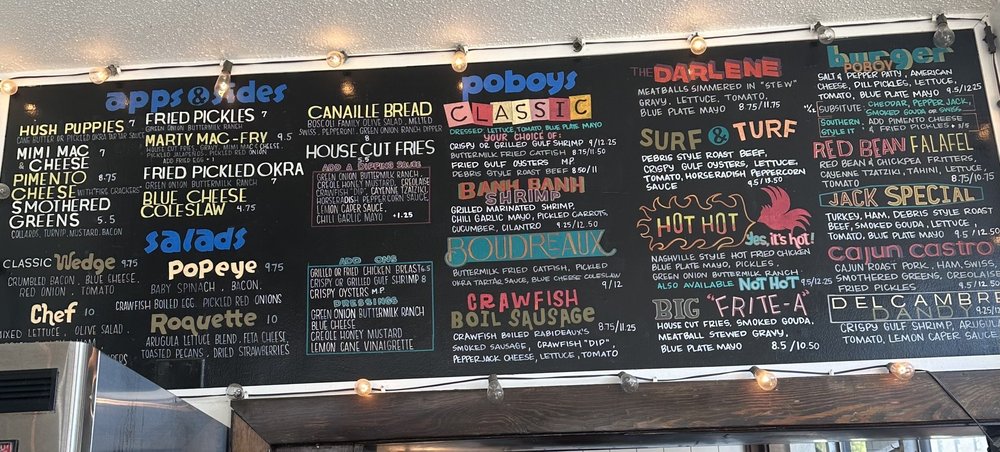 apps & sides
HUSH PUPPIES 7
CANE BUTTER OR PICKLED OKRA TARTAR SAUCE
MIMI MAC 7
& CHEESE
PIMENTO 8.75
CHEESE WITH FIRE CRACKERS
SMOTHERED
GREENS 5.5
COLLARDS, TURNIP, MUSTARD, BACON
FRIED PICKLES 7
GREEN ONION BUTTERMILK RANCH
MARTY MAC-FRY 9.5
HOUSE CUT FRIES, GRAVY, MIMI MAC & CHEESE,
PICKLED JALAPEÑOS, PICKLED RED ONION
ADD FRIED EGG
FRIED PICKLED OKRA
GREEN ONION BUTTERMILK RANCH 7
BLUE CHEESE
COLESLAW 4.75
CANAILLE BREAD
BOSCOLI FAMILY OLIVE SALAD, MELTED
SWISS, PEPPERONI, GREEN ONION RANCH DIPPER
HOUSE CUT FRIES
ADD A DIPPING SAUCE
GREEN ONION BUTTERMILK RANCH,
CREOLE HONEY MUSTARD, CREOLAISE
CRAWFISH "DIP", CAYENNE TZATZIKI,
HORSERADISH PEPPERCORN SAUCE,
LEMON CAPER SAUCE
CHILI GARLIC MAYO +1.25
salads
CLASSIC Wedge 9.75
CRUMBLED BACON, BLUE CHEESE,
RED ONION, TOMATO
Chef 10
MIXED LETTUCE, OLIVE SALAD,
POPeye 9.75
BABY SPINACH, BACON,
CRAWFISH BOILED EGG, PICKLED RED ONIONS
Roquette 10
ARUGULA LETTUCE BLEND, FETA CHEESE
TOASTED PECANS, DRIED STRAWBERRIES
ADD ONS
GRILLED OR FRIED CHICKEN BREAST 6.5
GRILLED OR CRISPY GULF SHRIMP 8
CRISPY OYSTERS MP
DRESSINGS
GREEN ONION BUTTERMILK RANCH
BLUE CHEESE
CREOLE HONEY MUSTARD
LEMON CANE VINAIGRETTE
poboys
CLASSIC
DRESSED: LETTUCE, TOMATO, BLUE PLATE MAYO
YOUR CHOICE OF:
CRISPY OR GRILLED GULF SHRIMP 9/12.25
BUTTERMILK FRIED CATFISH 8.75/11.50
FRIED GULF OYSTERS MP
DEBRIS STYLE ROAST BEEF 8.50/11
BANH BANH
SHRIMP
GRILLED MARINATED SHRIMP,
CHILI GARLIC MAYO, PICKLED CARROTS,
CUCUMBER, CILANTRO 9.25/12.25
BOUDREAUX
BUTTERMILK FRIED CATFISH, PICKLED
OKRA TARTAR SAUCE, BLUE CHEESE COLESLAW
9/12
CRAWFISH
BOIL SAUSAGE 8.75/11.25
CRAWFISH BOILED RABIDEAUX'S
SMOKED SAUSAGE, CRAWFISH "DIP",
PEPPERJACK CHEESE, LETTUCE, TOMATO
THE DARLENE
MEATBALLS SIMMERED IN "STEW"
GRAVY, LETTUCE, TOMATO,
BLUE PLATE MAYO 8.75/11.75
SURF & TURF
DEBRIS STYLE ROAST BEEF,
CRISPY GULF OYSTERS, LETTUCE,
TOMATO, HORSERADISH PEPPERCORN
SAUCE 9.5/13.50
HOT HOT
Yes, it's hot!
NASHVILLE STYLE HOT FRIED CHICKEN
BLUE PLATE MAYO, PICKLES,
GREEN ONION BUTTERMILK RANCH
ALSO AVAILABLE NOT HOT 9.5/12.25
BIG "FRITE-A"
HOUSE CUT FRIES, SMOKED GOUDA,
MEATBALL STEWED GRAVY,
BLUE PLATE MAYO 8.5/10.50
burger
POBOY
SALT & PEPPER PATTY, AMERICAN
CHEESE, DILL PICKLES, LETTUCE,
TOMATO, BLUE PLATE MAYO 9.25/12.25
SUBSTITUTE: CHEDDAR, PEPPER JACK,
SMOKED GOUDA OR SWISS
SOUTHERN ADD PIMENTO CHEESE
STYLE IT & FRIED PICKLES
RED BEAN FALAFEL
RED BEAN & CHICKPEA FRITTERS,
CAYENNE TZATZIKI, TAHINI, LETTUCE,
TOMATO 8.75/10.75
JACK SPECIAL
TURKEY, HAM, DEBRIS STYLE ROAST
BEEF, SMOKED GOUDA, LETTUCE
TOMATO, BLUE PLATE MAYO 9.5/12.50
cajun castro
CAJUN ROAST PORK, HAM, SWISS,
SMOTHERED GREENS, CREOLAISE
FRIED PICKLES 9.5/12.50
DELCAMBRE
DANDY
CRISPY GULF SHRIMP, ARUGULA
TOMATO, LEMON CAPER SAUCE